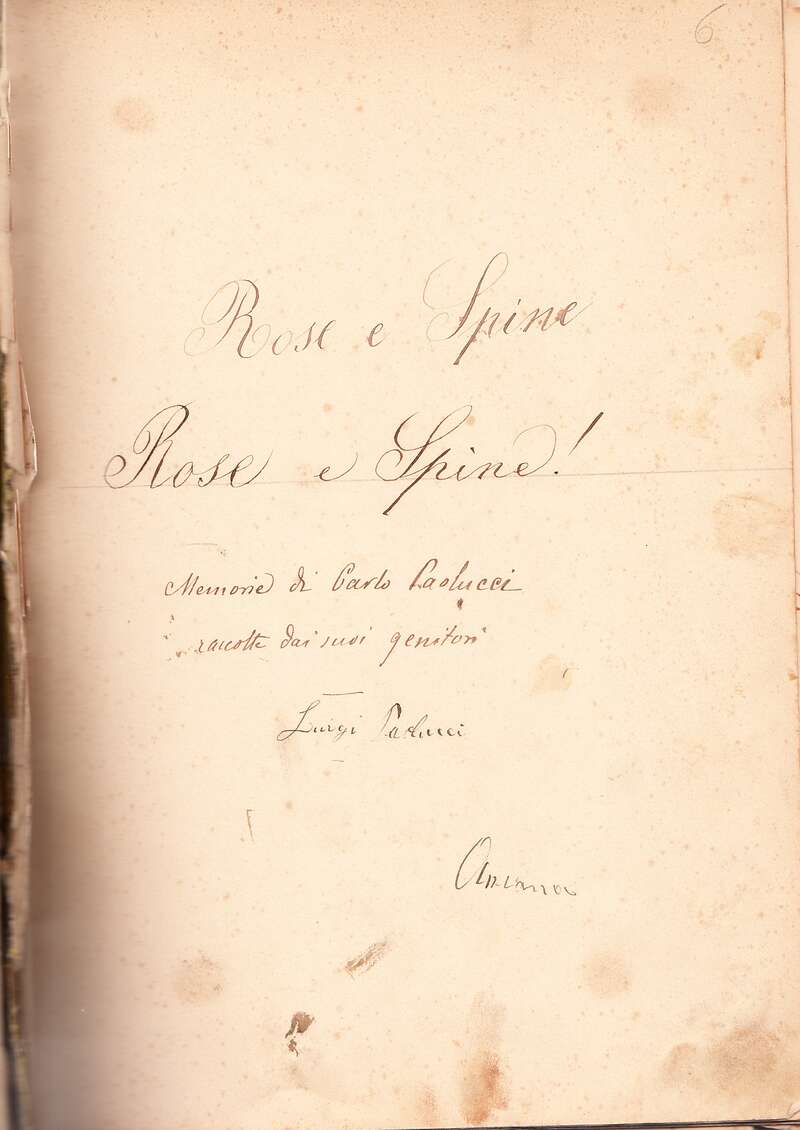 6
Rose e Spine
Rose e Spine!
Memorie di Carlo Paolucci
raccolte dai suoi genitori
Luigi Paolucci
Ancona